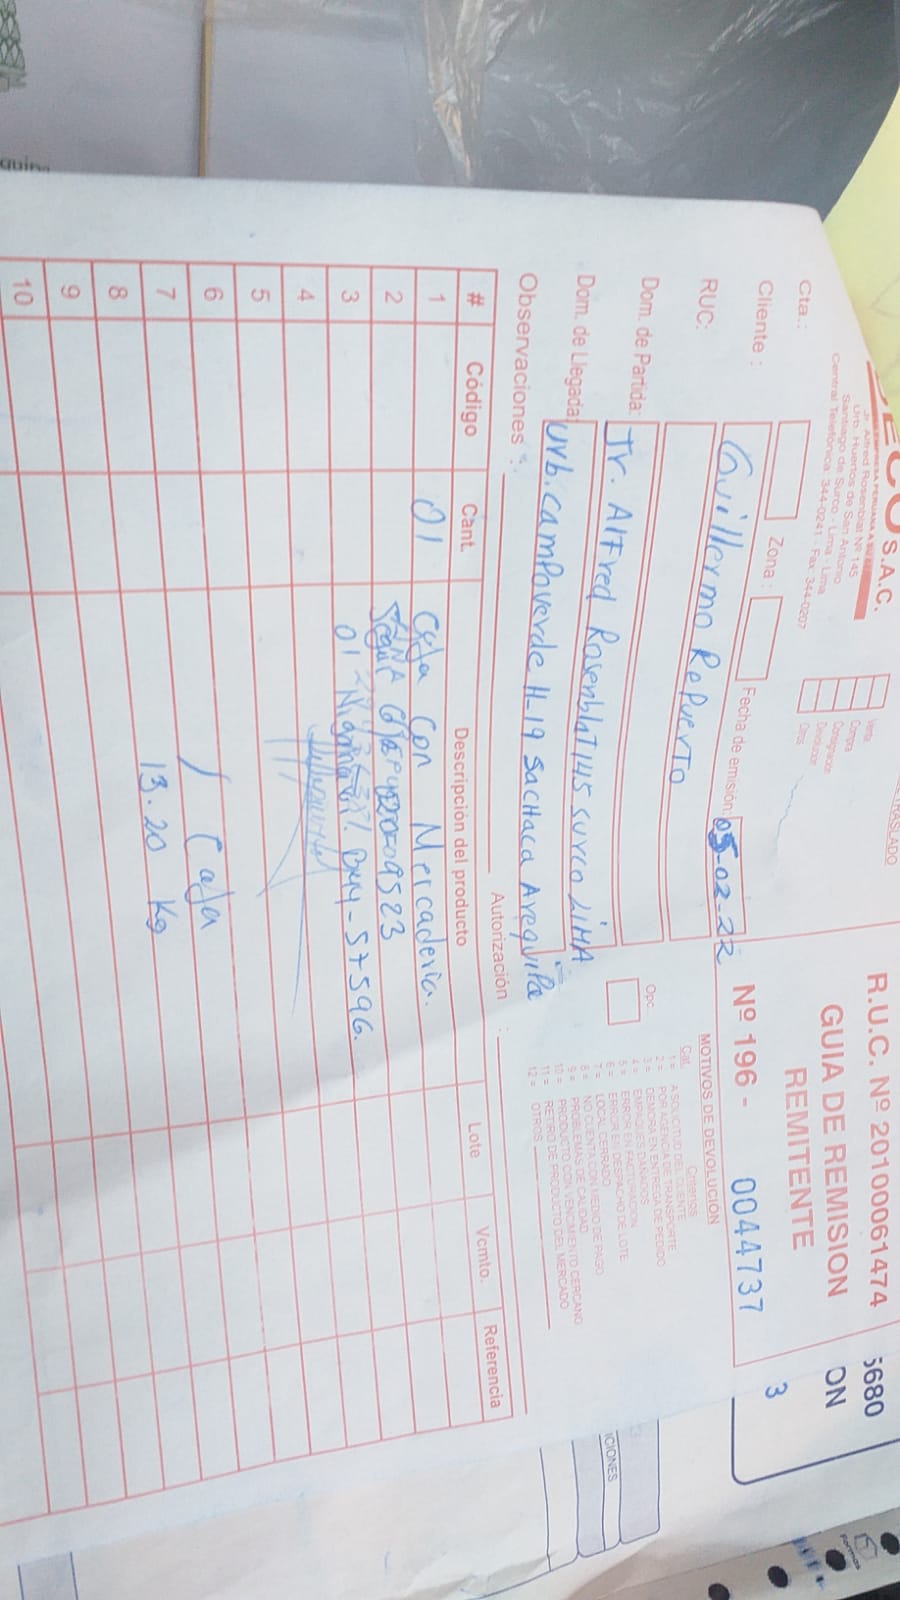 S.A.C.
Jr. Alfred Rosenblat Nº 145
Urb. Huertos de San Antonio
Santiago de Surco - Lima - Lima
Central Telefónica: 344-0241 - Fax: 344-0207
Venta
Compra
Consignación
Devolución
Otros
TRASLADO
R.U.C. Nº 20100061474
GUIA DE REMISION
REMITENTE
Nº 196 - 0044737
5680
ON
3
Cta.:
Zona :
Fecha de emisión: 05-02-22
Cliente : Guillermo Repuerto
RUC:
Dom. de Partida: Jr. Alfred Rosenblat 145 Surco LIMA
Dom. de Llegada: Urb. Campoverde H-19 Sachaca Arequipa
Opc.
MOTIVOS DE DEVOLUCIÓN
Cat. Criterios
1 = A SOLICITUD DEL CLIENTE
2 = POR AGENCIA DE TRANSPORTE
3 = DEMORA EN ENTREGA DE PEDIDO
4 = EMPAQUES DAÑADOS
5 = ERROR EN FACTURACION
6 = ERROR EN DESPACHO DE LOTE
7 = LOCAL CERRADO
8 = NO CUENTA CON MEDIO DE PAGO
9 = PROBLEMAS DE CALIDAD
10 = PRODUCTO CON VENCIMIENTO CERCANO
11 = RETIRO DE PRODUCTO DEL MERCADO
12 = OTROS
Observaciones :
Autorización :
# Código Cant. Descripción del producto Lote Vcmto. Referencia
1 01 Caja Con Mercaderia.
2
3
4
5
6 1 Caja
7 13.20 Kg
8
9
10
CIONES